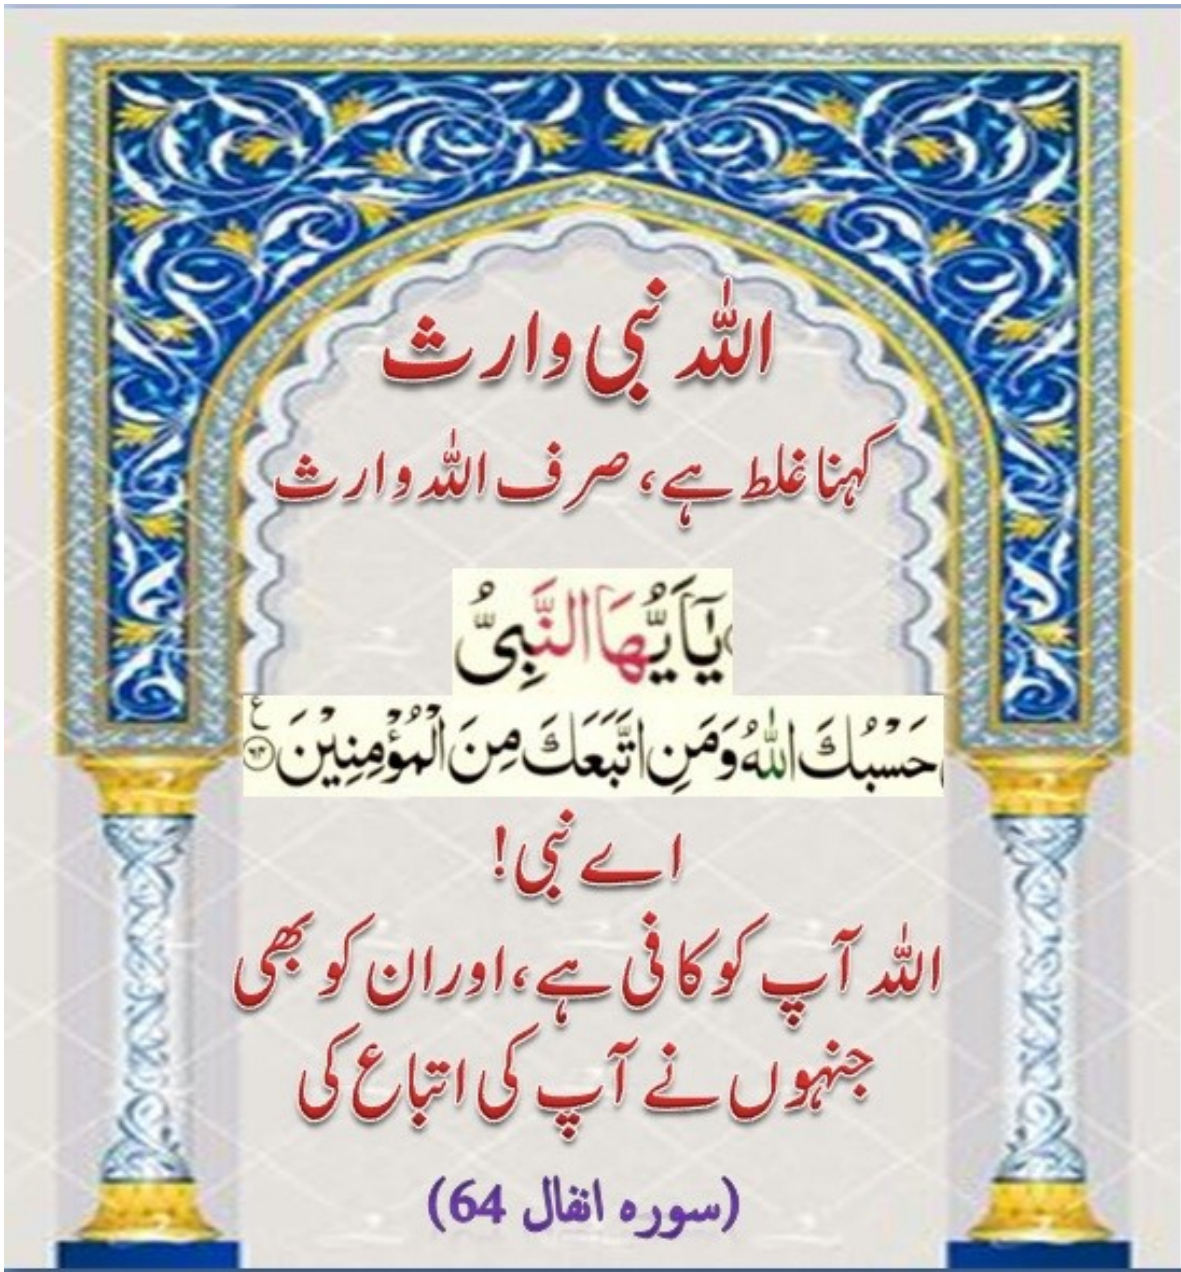 اللہ نبی وارث
کہنا غلط ہے، صرف اللہ وارث
يٰۤاَيُّهَا النَّبِىُّ
حَسْبُكَ اللّٰهُ وَمَنِ اتَّبَعَكَ مِنَ الْمُؤْمِنِيْنَ ۶۴ ع
اے نبی!
اللہ آپ کو کافی ہے، اور ان کو بھی
جنہوں نے آپ کی اتباع کی
(سورہ انفال 64)